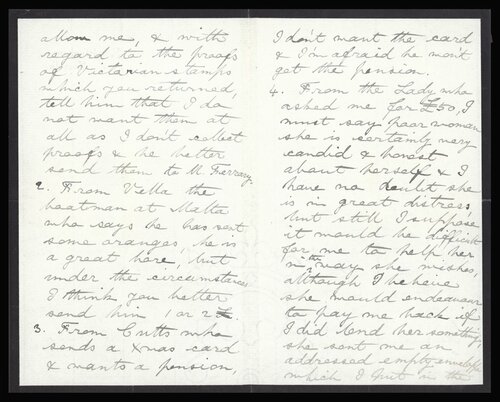 allow me, & with
regard to, the proofs
of Victorian stamps
which you returned,
tell him that I do
not want them at
all as I don't collect
proofs & he better
send them to M Ferrary.
2. From Vella the
boatman at Malta
who says he has sent
some oranges, he is
a great bore, but
under the circumstances
I think you better
send him 1 or 2 £
3. From Cutts who
sends a Xmas card
& wants a pension,
I don't want the card
& I'm afraid he won't
get the pension.
4. From the Lady who
asked me for £50, I
must say poor woman
she is certainly very
candid & honest
about herself & I
have no doubt she
is in great distress
but still I suppose
it would be difficult
for me to help her
in the way she wishes,
although I believe
she would endeavour
to pay me back if
I did lend her something
she sent me an
addressed empty envelope
which I put in the